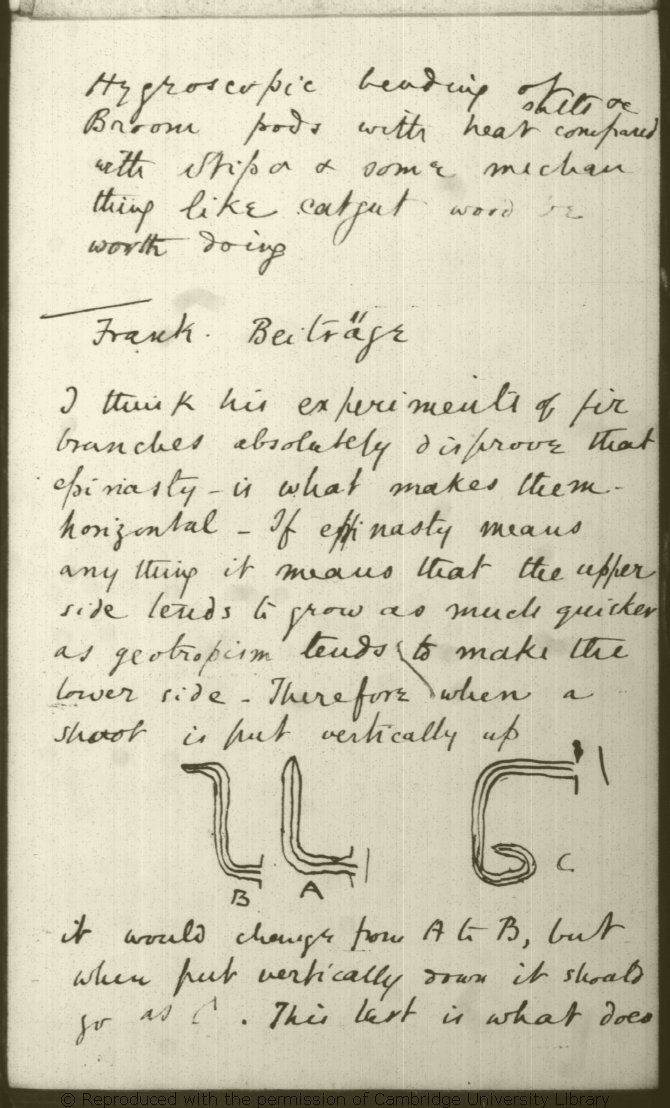 Hygroscopic bending of
salts &c
Broom pods with heat compared
with Stipa & some mechan
thing like catgut
worth doing
Frank. Beiträge
I think his experiments of fir
branches absolutely disprove that
epinasty - is what makes them -
horizontal - If epinasty means
any thing it means that the upper
side tends to grow as much quicker
as geotropism tends to make the
lower side - Therefore when a
shoot is put vertically up
B A C
it would change from A to B, but
when put vertically down it should
go as C. This last is what does
© Reproduced with the permission of Cambridge University Library